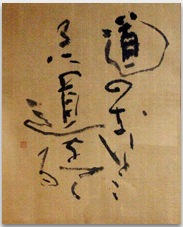 道のないとこ
ろに道をつくる